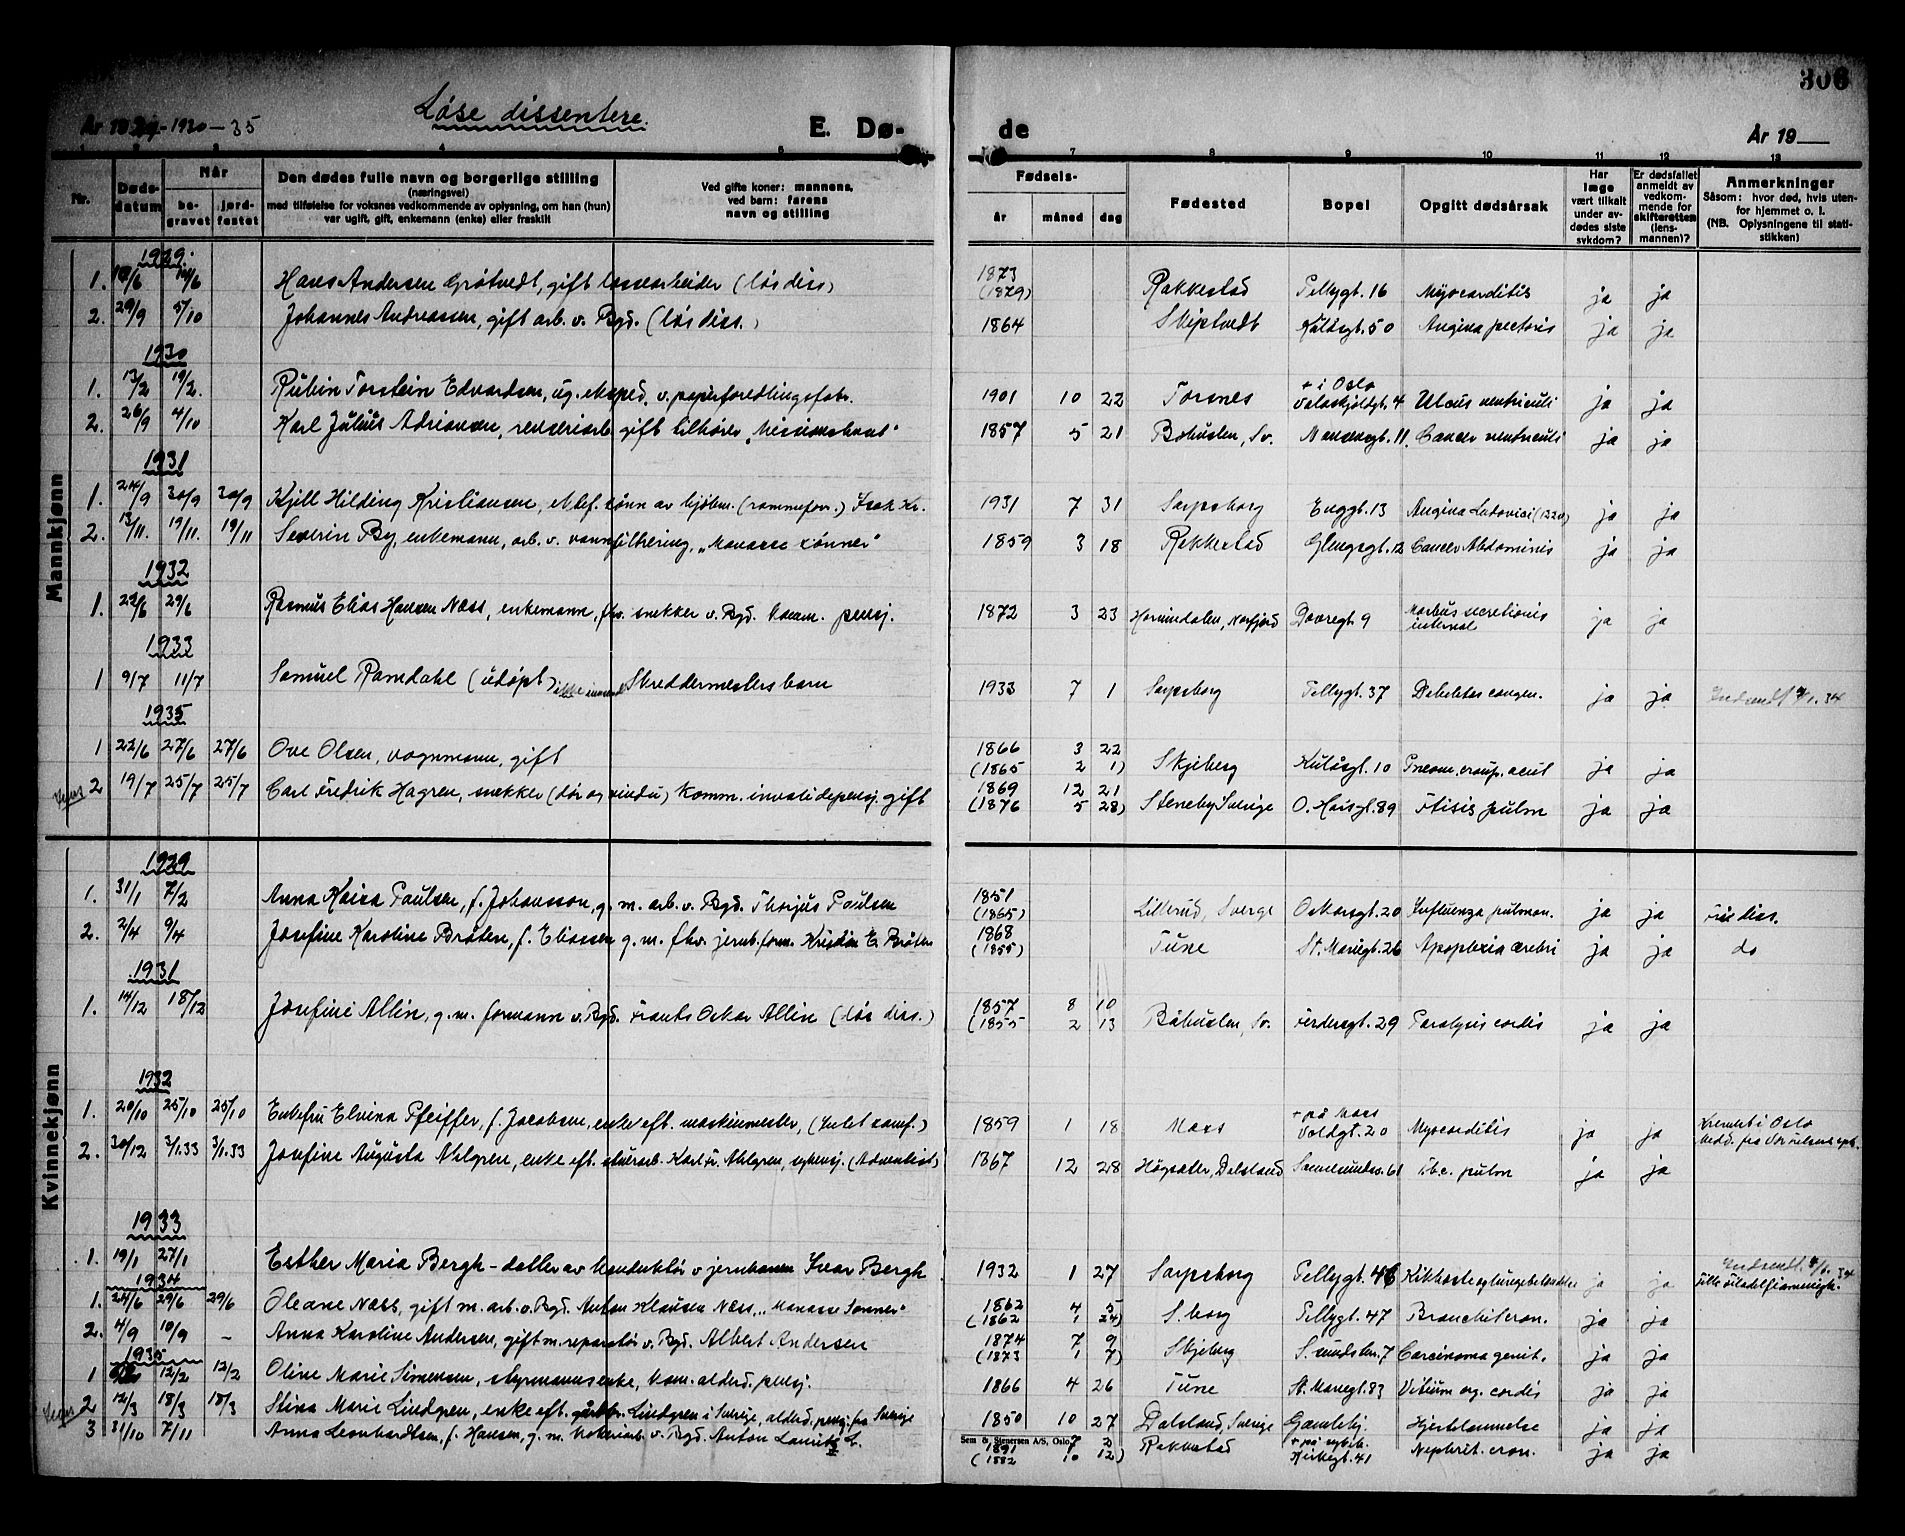 306
År 1929-1930-35
Løse dissentere.
E. Dø-
de
År 19
1 2 3 4 5 7 8 9 10 11 12 13
Nr.
Døds-
datum
Når
be-
gravet
jord-
festet
Den dødes fulle navn og borgerlige stilling
(næringsvei)
med tilføielse for voksnes vedkommende av oplysning, om han (hun)
var ugift, gift, enkemann (enke) eller fraskilt
Ved gifte koner: mannens,
ved barn: farens
navn og stilling
Fødsels-
år måned dag
Fødested
Bopel
Opgitt dødsårsak
Har
læge
vært tilkalt
under av-
dødes siste
sykdom?
Er dødsfallet
anmeldt av
vedkom-
mende for
skifteretten
(lens-
mannen)?
Anmerkninger
Såsom: hvor død, hvis uten-
for hjemmet o. l.
(NB. Oplysningene til stati-
stikken)
Mannkjønn
1929.
1. 18/6 14/6 Hans Andersen Grøtvedt, gift lossearbeider (løs diss) 1873 (1879) Rakkestad Pellygt. 16 Myocarditis ja ja
2. 29/9 5/10 Johannes Andreassen, gift arb. v. Bgd. (løs diss.) 1864 Skiptvedt Kulåsgt. 50 Angina pectoris ja ja
1930
1. 13/2 19/2. Rubin Torstein Edvardsen, ug. eksped. v. papirforedlingsfabr. 1901 10 22 Torsnes + i Oslo Valaskjoldgt. 4 Ulcus ventriculi ja ja
2. 26/9 4/10 Karl Julius Adriansen, renseriarb. gift tilhører "Missionsbund" 1857 5 21 Bohuslen, Sv. Nansensgt. 11. Cancer ventriculi ja ja
1931
1. 24/9 30/9 30/9 Kjell Hilding Kristiansen, sønn av kjøbm. (rammeforr.) Isak Kr. 1931 7 31 Sarpsborg Enggt. 13 Angina Ludovici (1220) ja ja
2. 13/11. 19/11. 19/11 Severin By, enkemann, arb. v. vannfiltrering, "Manasse sønner" 1859 3 18 Rakkestad Glengsgt. 12 Cancer Abdominis ja ja
1932
1. 22/6 29/6 Rasmus Elias Hansen Næss, enkemann, fhv. snekker v. Bgd. komm. pensj. 1872 3 23 Hornindalen, Norfjord Dovregt. 9 Morbus secretionis internal ja ja
1933
1 9/7 11/7 Samuel Ramdahl (udøpt) Skreddermesters barn 1933 7 1 Sarpsborg Pellygt. 37 Debelitas congen. ja ja Innsendt 4/1. 34
1935
1 22/6 27/6 27/6 Ove Olsen, vognmann, gift 1866 3 22 (1865 2 1) Skjeberg Kulåsgt. 10 Pneum. croup. acut ja ja
2 19/7 25/7 25/7 Carl Fredrik Hagren, snekker (dør og vindu) komm. invalidepensj. gift 1869 12 21 (1876 5 28) Steneby Sverige O. Haisgt. 89 Ftisis pulm ja ja
Kvinnekjønn
1929
1. 31/1 7/2 Anna Kaisa Paulsen, f. Johansson, g. m. arb. v. Bgd. Thorjus Paulsen 1851 (1865) Lillerud, Sverge Oskarsgt. 20 Influenza pulmon. ja ja Frie diss.
2. 2/4 9/4 Josefine Karoline Bråten, f. Eliassen g. m. fhv. jernb.form. Kristian E. Bråten 1868 (1855) Tune St. Mariegt. 26 Apoplexia cerebri ja ja do
1931
1. 14/12 18/12 Josefine Allin, g. m. formann v. Bgd. Frants Oskar Allin (løs diss.) 1857 8 10 (1855 2 13 Båhuslen, Sv. Ferdersgt. 29 Paralysis cordis ja ja
1932
1. 20/10 25/10 25/10 Enkefru Elvina Pfeiffer, f. Jacobsen, enke eft. maskinmester, (Intet samf.) 1859 1 18 Moss + på Moss Voldgt. 20 Myocarditis ja ja Kremert i Oslo
2. 30/12 3/1.33 3/1.33 Josefine Augusta Ahlgren, enke eft. Karl Fr. Ahlgren, (Adventist) 1867 12 28 Högsäter, Dalsland Sannesundsv. 61 Tbc. pulm ja ja
1933
1. 19/1 27/1 Esther Maria Bergh - datter av konduktør v jernbanen Ivar Bergh 1932 1 27 Sarpsborg Pellygt. 46 Kikhoste og lungebetendelse ja ja Innsendt 4/1. 34
1934
1. 24/6 29/6 29/6 Oleane Næss, gift m. arb. v. Bgd. Anton Klausen Næss, "Manasse Sønner" 1862 4 5 (1862 1 24) S.borg Pellygt. 47 Bronchit cron. ja ja
2. 4/9 10/9 - Anna Karoline Andersen, gift m. reparatør v. Bgd. Albert Andersen 1874 7 9 (1873 1 7) Skjeberg S.sundsbr. 7 Carcinoma genit. ja ja
1935
1 12/2 12/2 Oline Marie Simensen, styrmannsenke, kom. alderd. pensj. 1866 4 26 Tune St. Mariegt. 83 Vitium org. cordis ja ja
2 12/3 18/3 18/3 Stina Marie Lindgren, enke eft. Lindgren i Sverige, alderd. pensj. fra Sverige 1850 10 27 Dalsland, Sverige Gamleby. Hjertelammelse ja ja
3 31/10 7/11 Anna Leonhardtsen, f. Hansen, g. m. v. Bgd. Anton Lauritz L. 1891 7 2 (1882 10 12) Rakkestad + på sykeh. Kirkegt. 41 Nephrit. cron. ja ja
Sem & Stenersen A/S, Oslo.